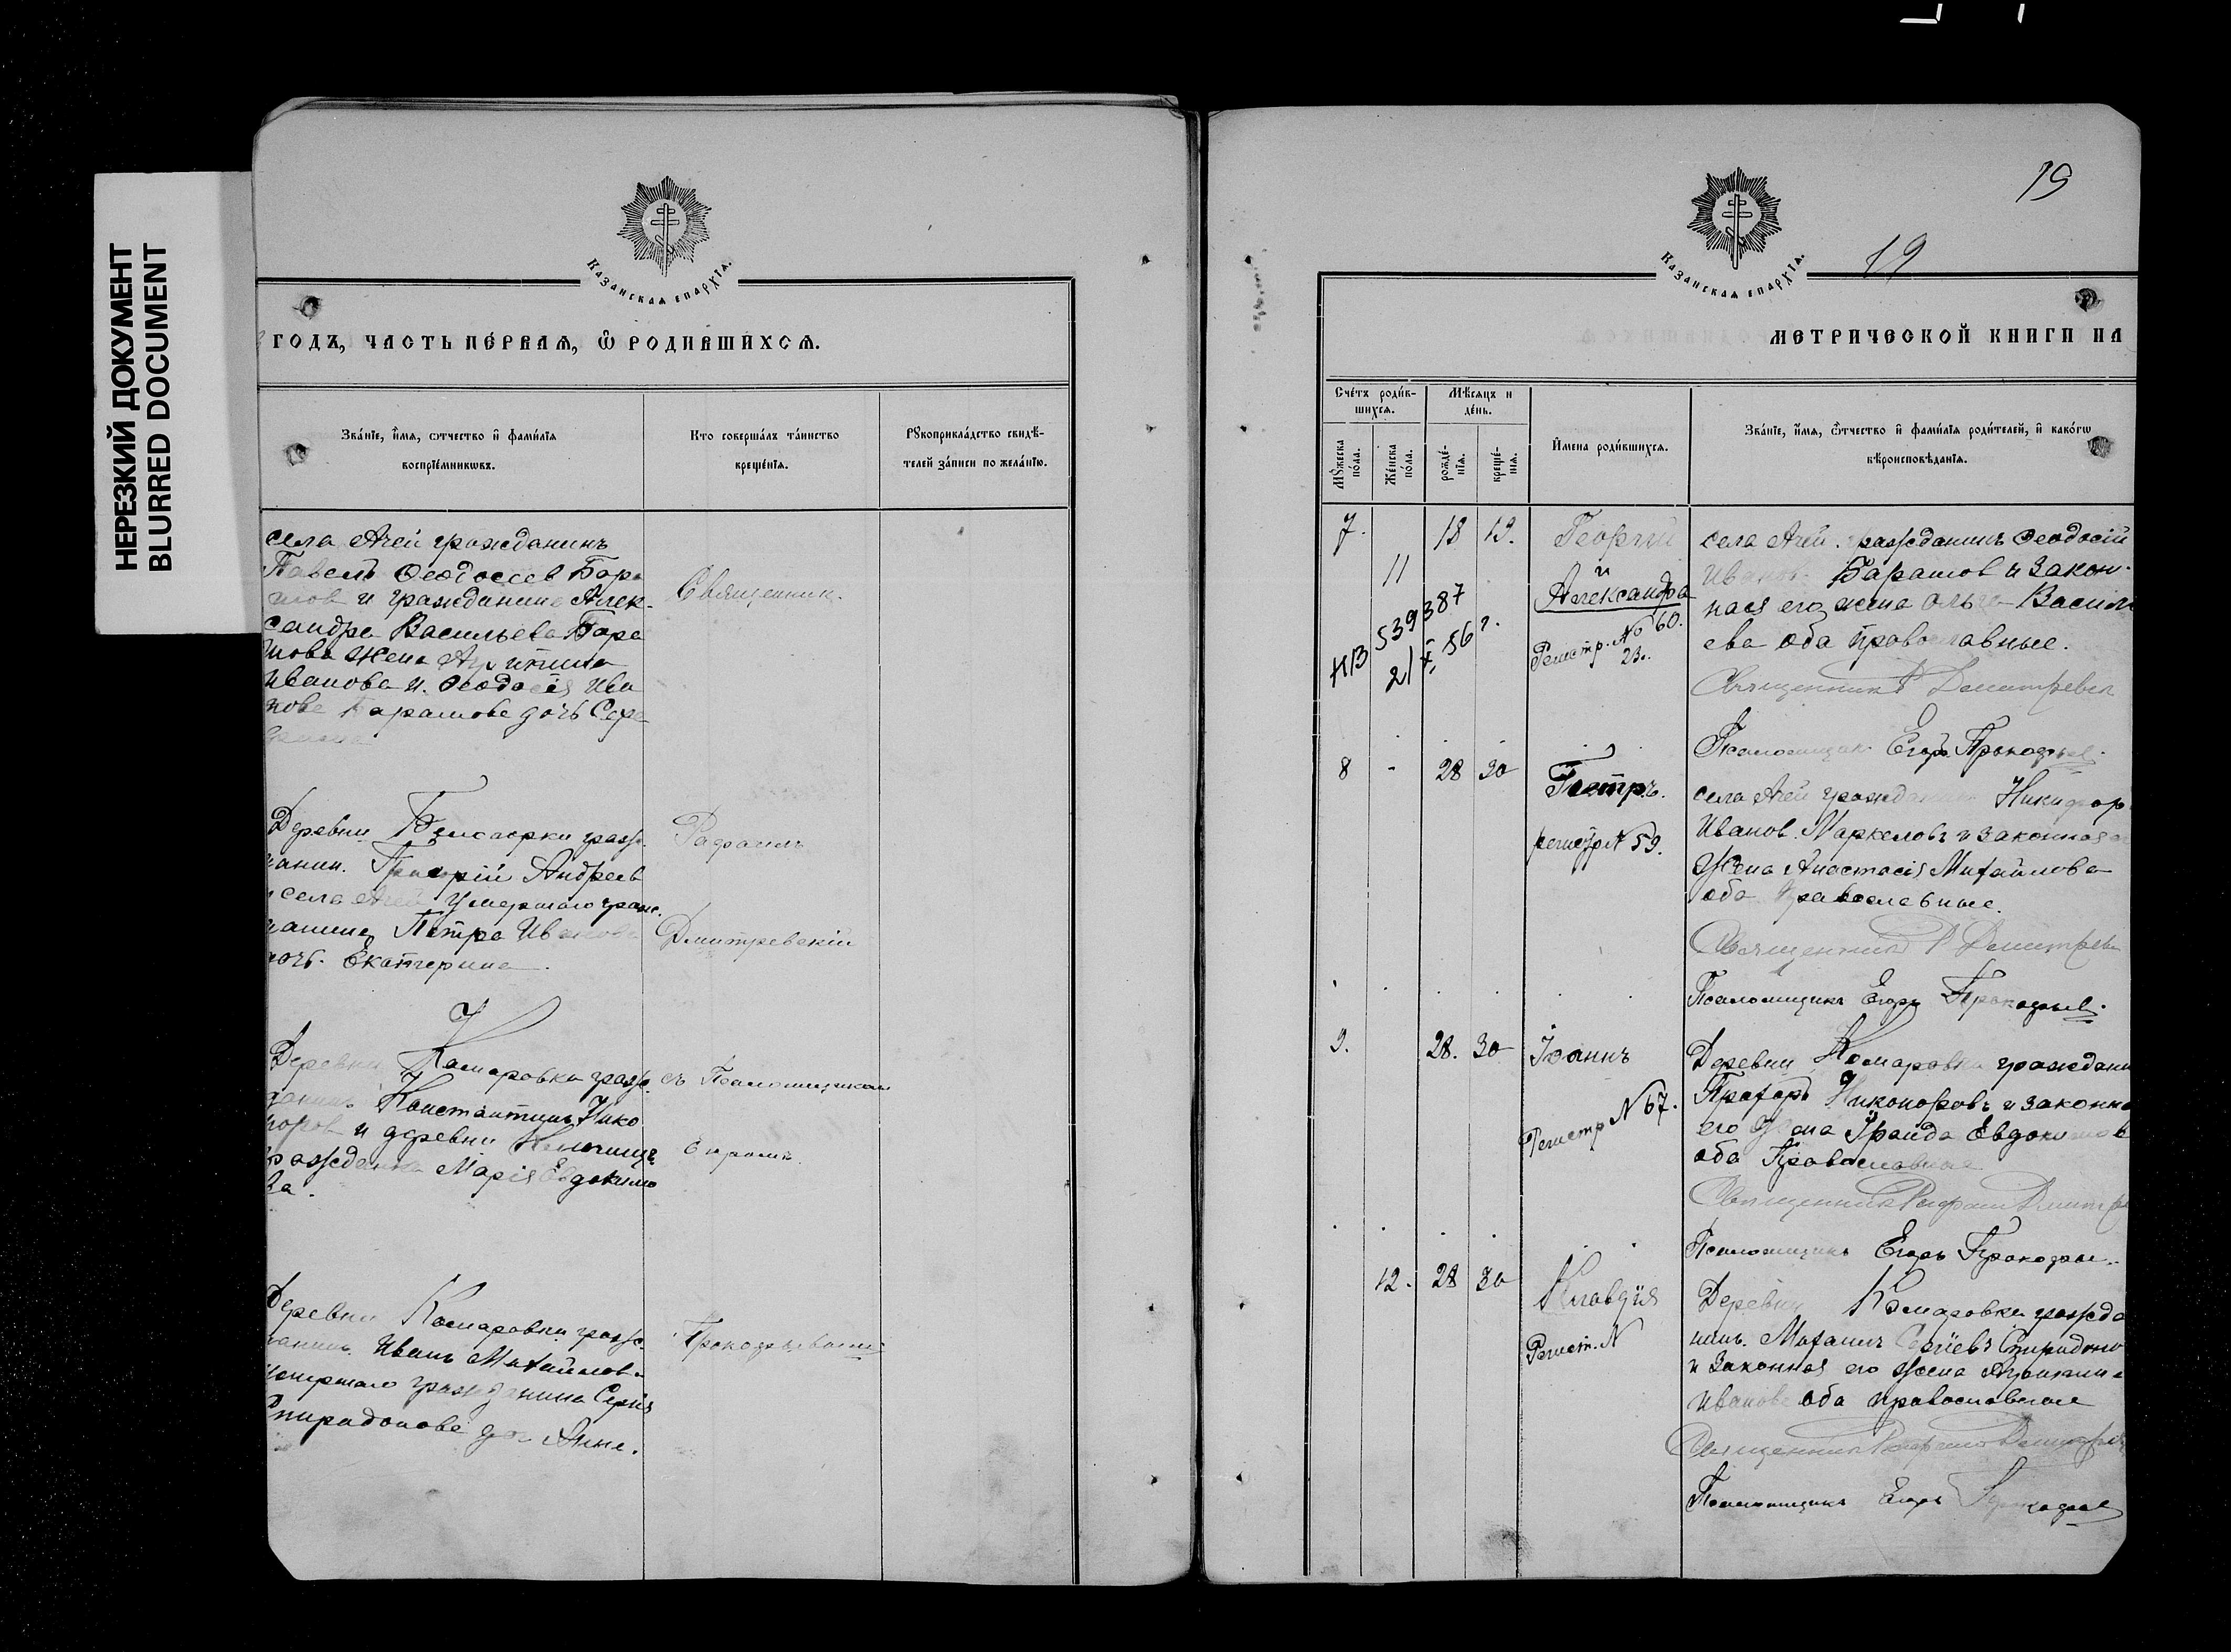 НЕРЕЗКИЙ ДОКУМЕНТ
BLURRED DOCUMENT
КАЗАНСКАЯ ЕПАРХІЯ.
ГОДЪ, ЧАСТЬ ПЕ́РВАЯ, Ѿ РОДИ́ВШИХСЯ.
Зва́нїе, и҆́мѧ, ѻ҆́тчество и҆ фами́лїѧ
воспрїе́мникѡвъ.
Кто соверша́лъ та́инство
креще́нїѧ.
Рꙋкоприкла́дство свидѣ́-
телей за́писи по жела́нїю.
села Ачей гражданинъ
Павелъ Ѳеодосеев Бара
шов и гражданина Алек-
сандра Васильева Бара
шова жена
Иванова и. Ѳеодосія Ива
нова Барашова дочь
Священник.
Деревни
Григорій Андреев
села Ачей умершаго граж.
Петра Иванова
Екатерина.
Рафаилъ
Дмитревскій
Деревни Комаровки граж.
Константинъ Нико
норов и деревни
Марія Евдокимо
ва.
съ Псаломщиком
Егоромъ
Деревни Комаровки граж.
Иванъ Михайлов.
гражданина Сергія
Спиридонова Анна.
Прокофьевымъ
19
19
КАЗАНСКАЯ ЕПАРХІЯ.
МЕТРИЧЕСКОЙ КНИГИ НА
Сче́тъ роди́в-
шихсѧ.
Мѣ́сѧцъ и
де́нь.
Мꙋ́жеска по́ла.
Же́нска по́ла.
рожде́нїѧ.
креще́нїѧ.
И҆мена роди́вшихсѧ.
Зва́нїе, и҆́мѧ, ѻ҆́тчество и҆ фами́лїѧ роди́телей, и҆ како́гѡ
вѣроисповѣ́данїѧ.
7. 18 19. Георгій
11 и
Александра
539387
21 X 56 г.
Регистр. № 60.
23.
села Ачей. гражданинъ Ѳеодосій
Иванов. Барашов и закон-
ная его жена Ольга Василь
ева оба православные.
Священникъ Р Дмитревск
Псаломщик Егоръ Прокофьев.
8 - 28 30 Петръ.
регистр № 59.
села Ачей гражданин Никифор
Иванов. Маркеловъ и законная
жена Анастасія Михайлова
оба православные.
Священникъ Р Дмитревск
Псаломщикъ Егоръ Прокофьев.
9. 28. 30 Іоаннъ
Регистр № 67.
Деревни Комаровки граждани
Никоноровъ и законна
его жена Ираида Евдокимов
оба Православные
Священникъ Рафаил Дмитр
Псаломщикъ Егоръ Прокофьев.
12. 28 30 Клавдія
Регист. №
Деревни Комаровки гражда
нинъ. Михаилъ Сергіевъ Спиридоно
и законная его жена
Иванова оба православные
Священникъ Рафаил Дмитрев
Псаломщикъ Егоръ Прокофьев